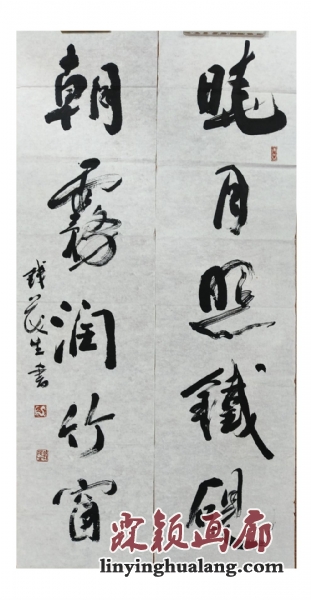 曉月照鐵硯
朝霧潤竹窗
錢茂生書
霖颖画廊
linyinghualang.com